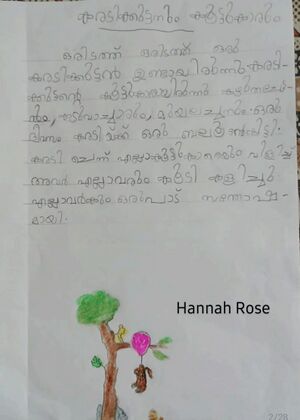 കരടിക്കുട്ടനും കൂട്ടുകാരും
ഒരിടത്ത് ഒരിടത്ത് ഒരു
കരടിക്കുട്ടൻ ഉണ്ടായിരുന്നു. കരടി-
ക്കുട്ടന്റെ കൂട്ടുകാരായിരുന്നു
മുയലച്ചനും. ഒരു
ദിവസം കരടിയ്ക്ക് ഒരു ബലൂൺ കിട്ടി.
കരടി ചെന്ന് എല്ലാകൂട്ടുകാരെയും വിളിച്ച്
അവർ എല്ലാവരും കൂടി കളിച്ചു
എല്ലാവർക്കും ഒരുപാട് സന്തോഷ-
മായി.
Hannah Rose
2/28